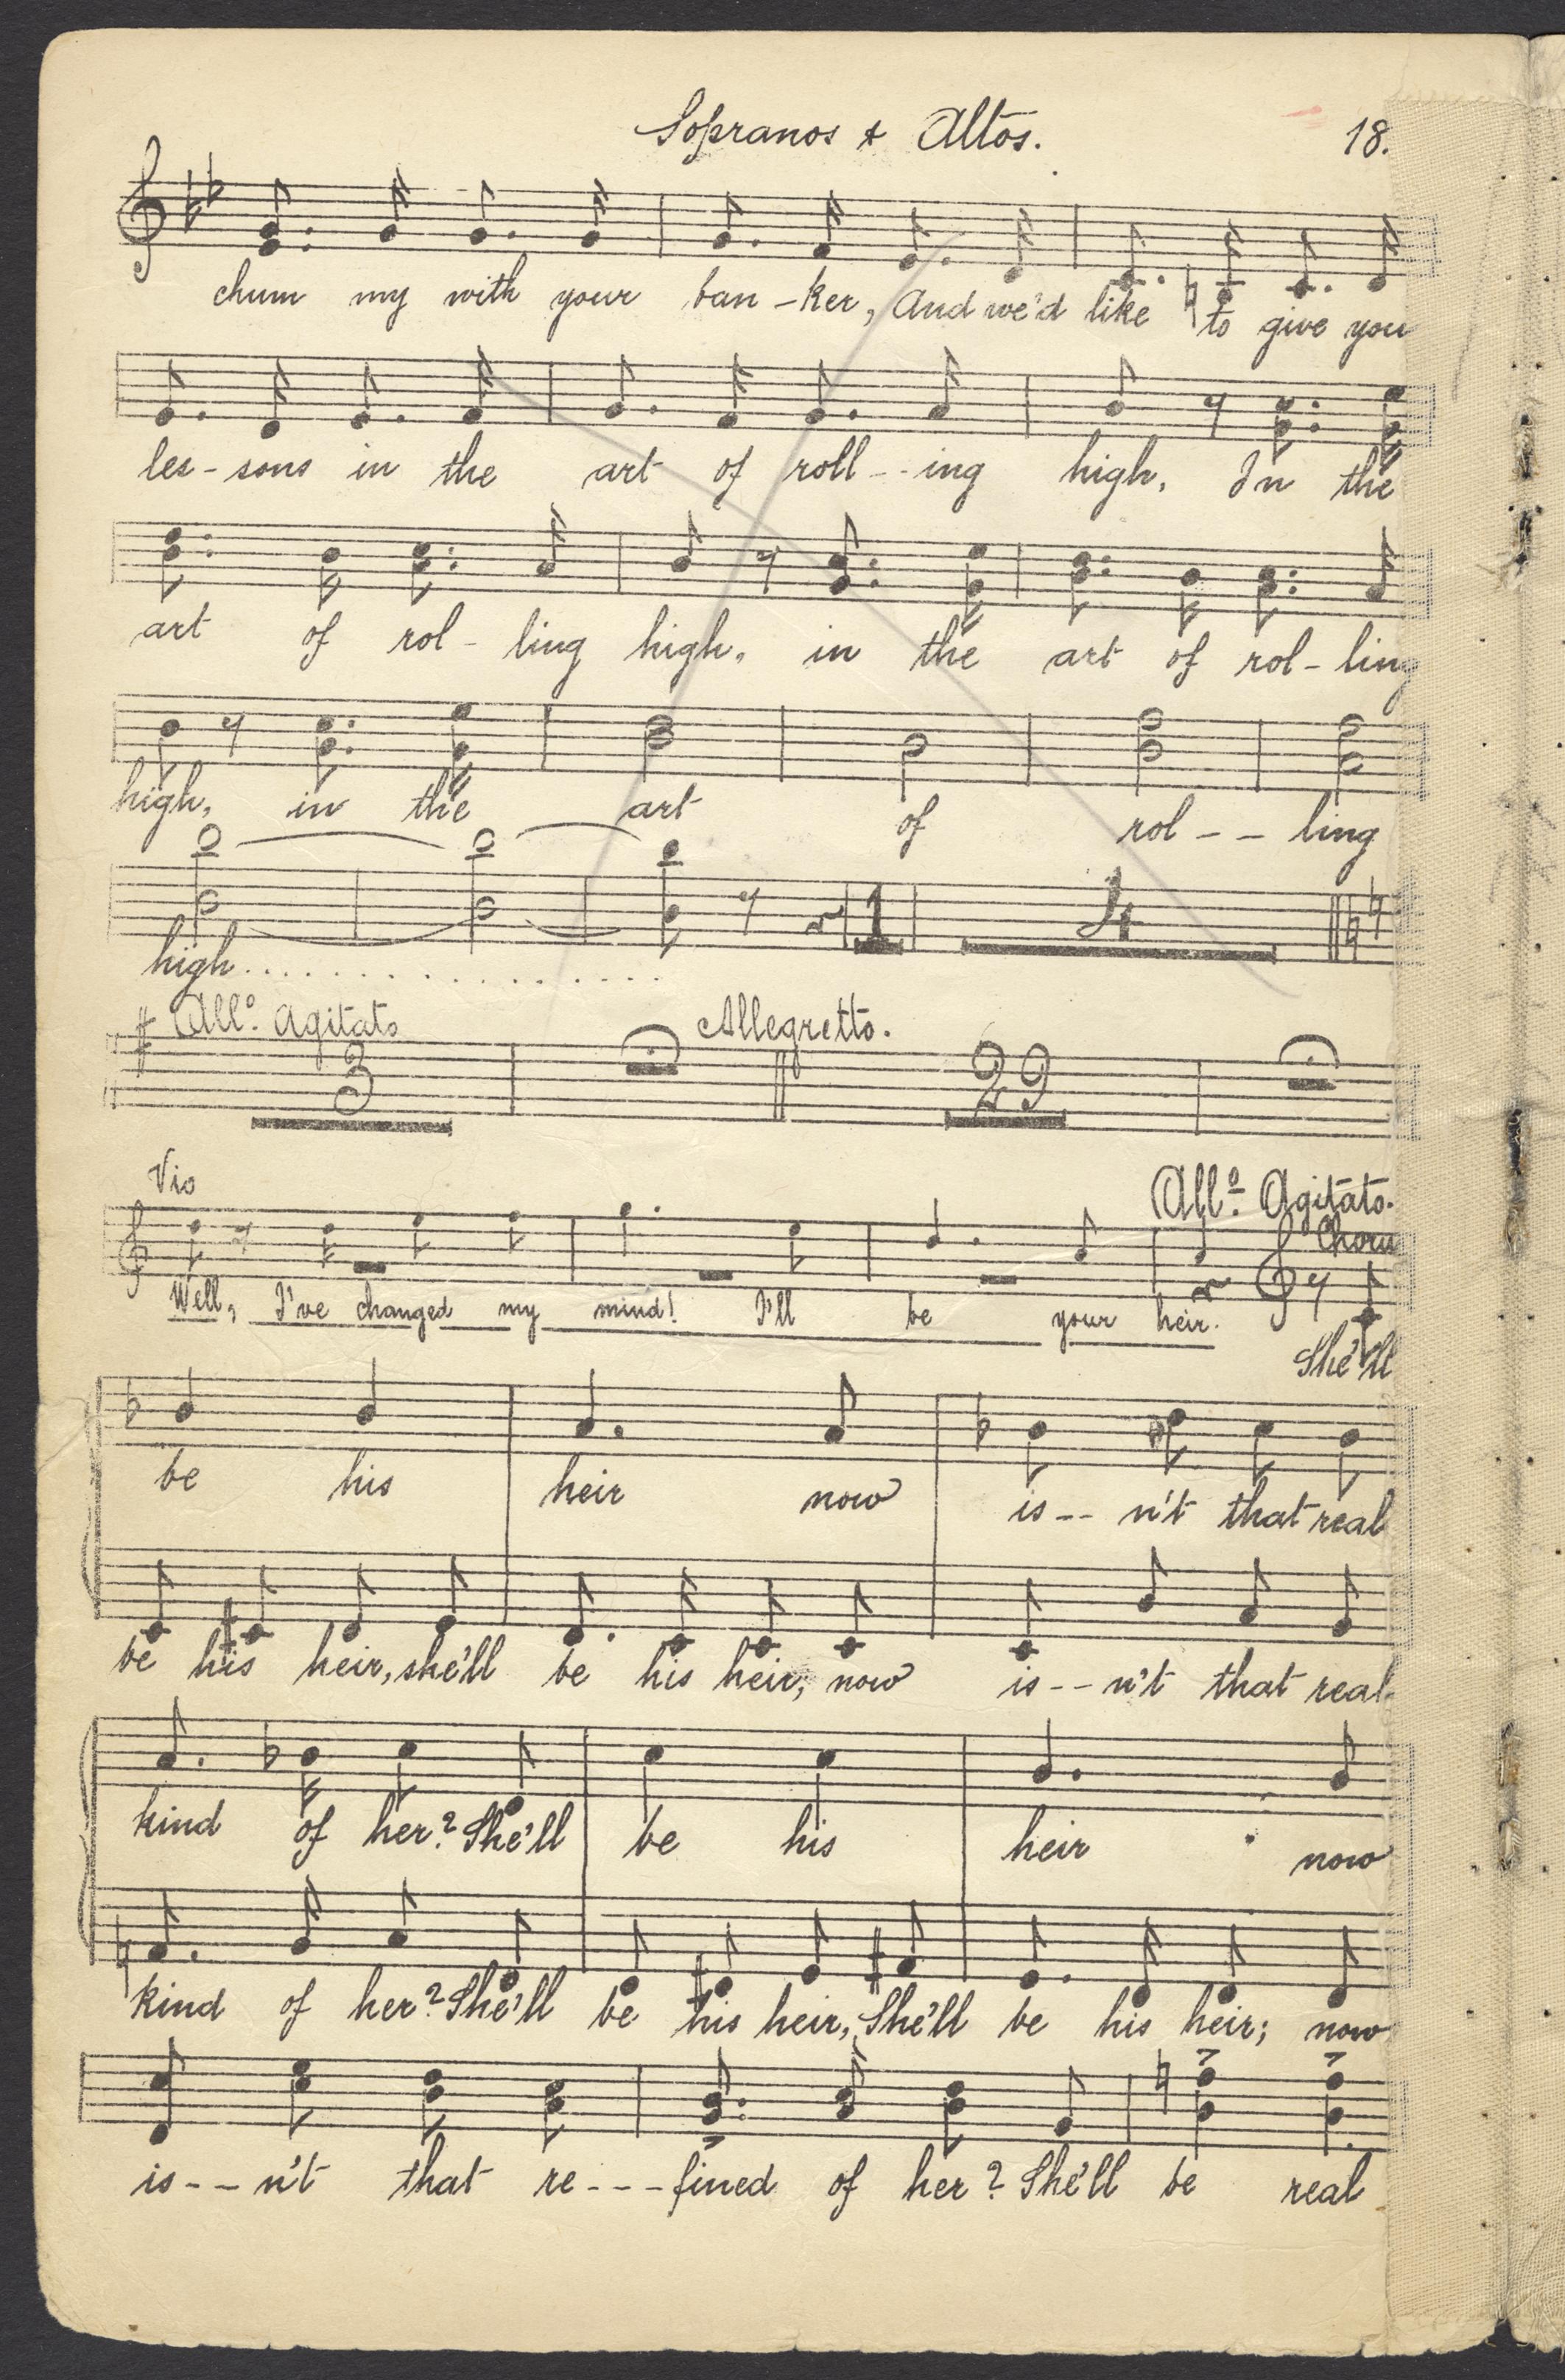 Sopranos & Altos. 18.
chum my with your ban - ker, And we'd like to give you
les - sons in the art of roll - - ing high, In the
art of rol - ling high, in the art of rol - ling
high, in the art of rol - - ling
high..................
1 4
All⁰. Agitato Allegretto.
3 29
Vio All⁰. Agitato.
Choru
Well, I've changed my mind! I'll be your heir.
She'll
be his heir now is - - n't that real
be his heir, she'll be his heir; now is - - n't that real
kind of her? She'll be his heir now
kind of her? She'll be his heir, She'll be his heir; now
is - - n't that re - - - fined of her? She'll be real